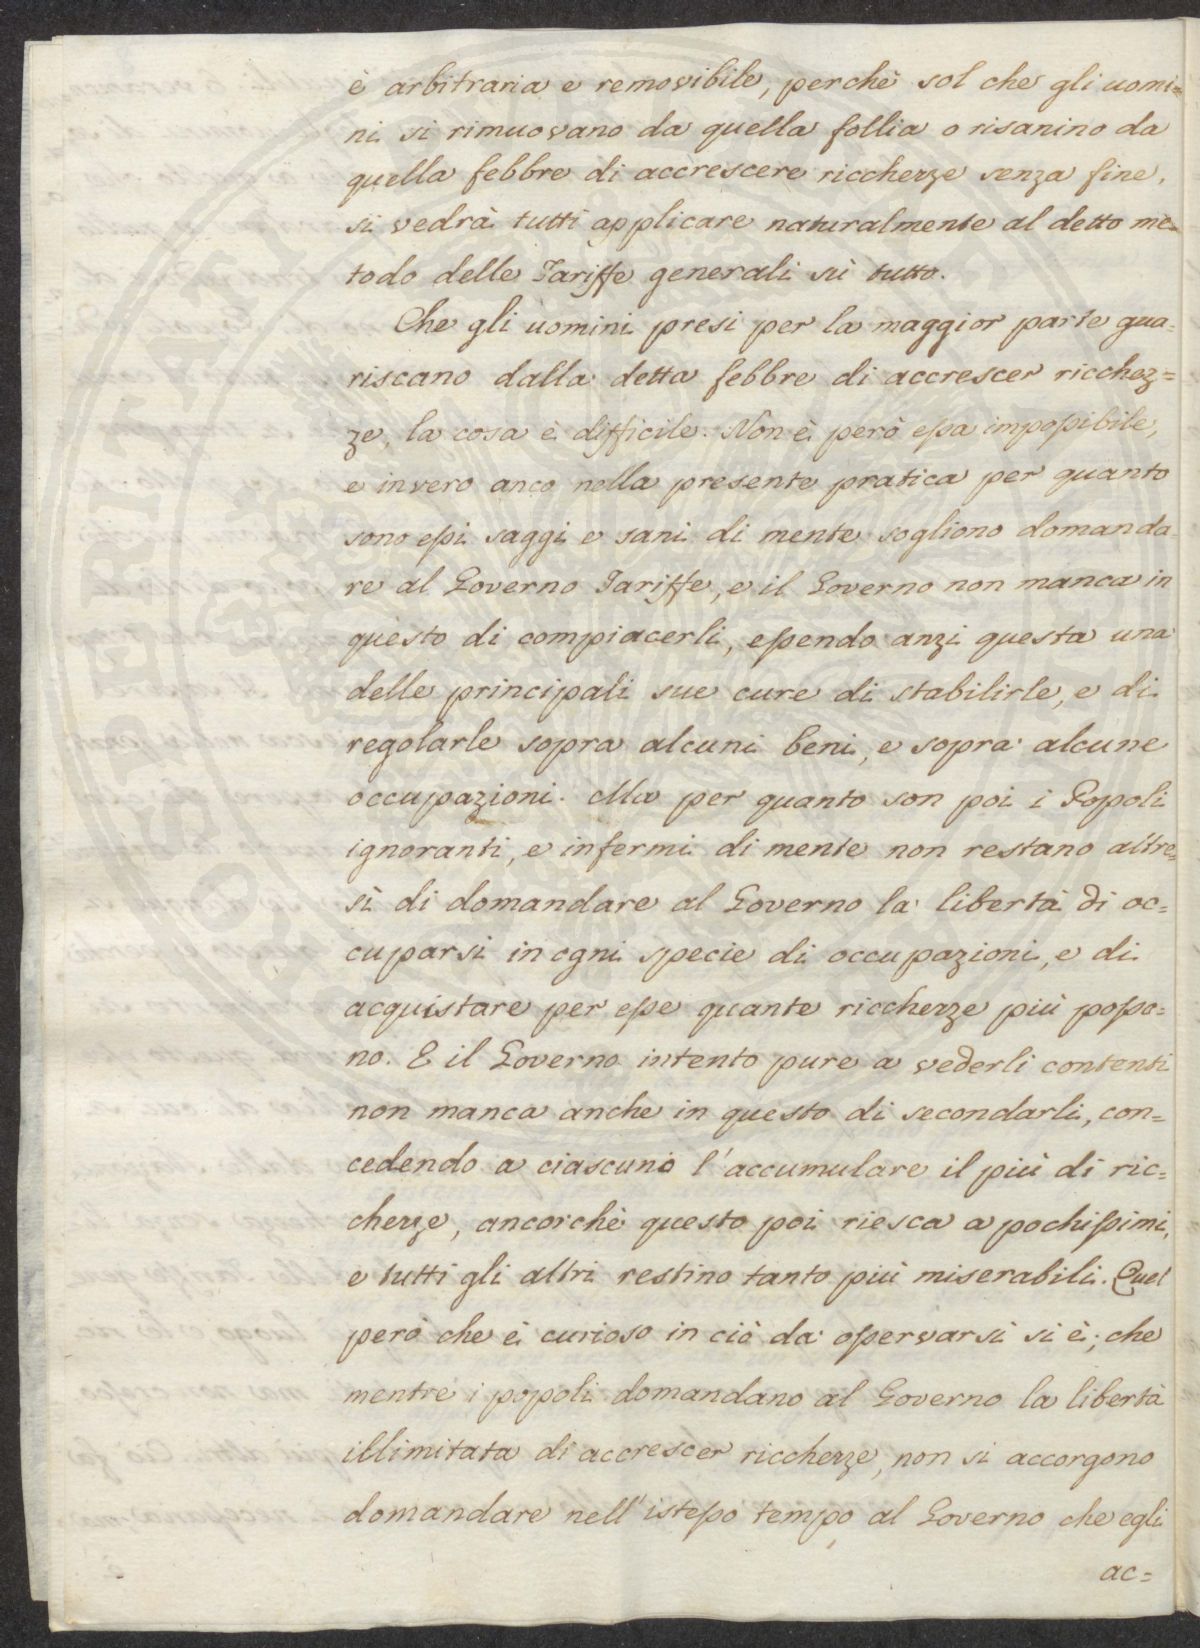 è arbitraria e removibile, perchè sol che gli uomi=
ni si rimuovano da quella follia o risanino da
quella febbre di accrescere ricchezze senza fine,
si vedrà tutti applicare naturalmente al detto me=
todo delle Tariffe generali sù tutto.
Che gli uomini presi per la maggior parte gua=
riscano dalla detta febbre di accrescer ricchez=
ze, la cosa è difficile. Non è però essa impossibile,
e invero anco nella presente pratica per quanto
sono essi saggi e sani di mente sogliono domanda=
re al Governo Tariffe, e il Governo non manca in
questo di compiacerli, essendo anzi questa una
delle principali sue cure di stabilirle, e di
regolarle sopra alcuni beni, e sopra alcune
occupazioni. Ma per quanto son poi i Popoli
ignoranti, e infermi di mente non restano altre=
sì di domandare al Governo la libertà di oc=
cuparsi in ogni specie di occupazioni, e di
acquistare per esse quante ricchezze più posso=
no. E il Governo intento pure a vederli contenti
non manca anche in questo di secondarli, con=
cedendo a ciascuno l'accumulare il più di ric=
chezze, ancorchè questo poi riesca a pochissimi,
e tutti gli altri restino tanto più miserabili. Quel
però che è curioso in ciò da osservarsi si è, che
mentre i popoli domandano al Governo la libertà
illimitata di accrescer ricchezze, non si accorgono
domandare nell'istesso tempo al Governo che egli
ac=